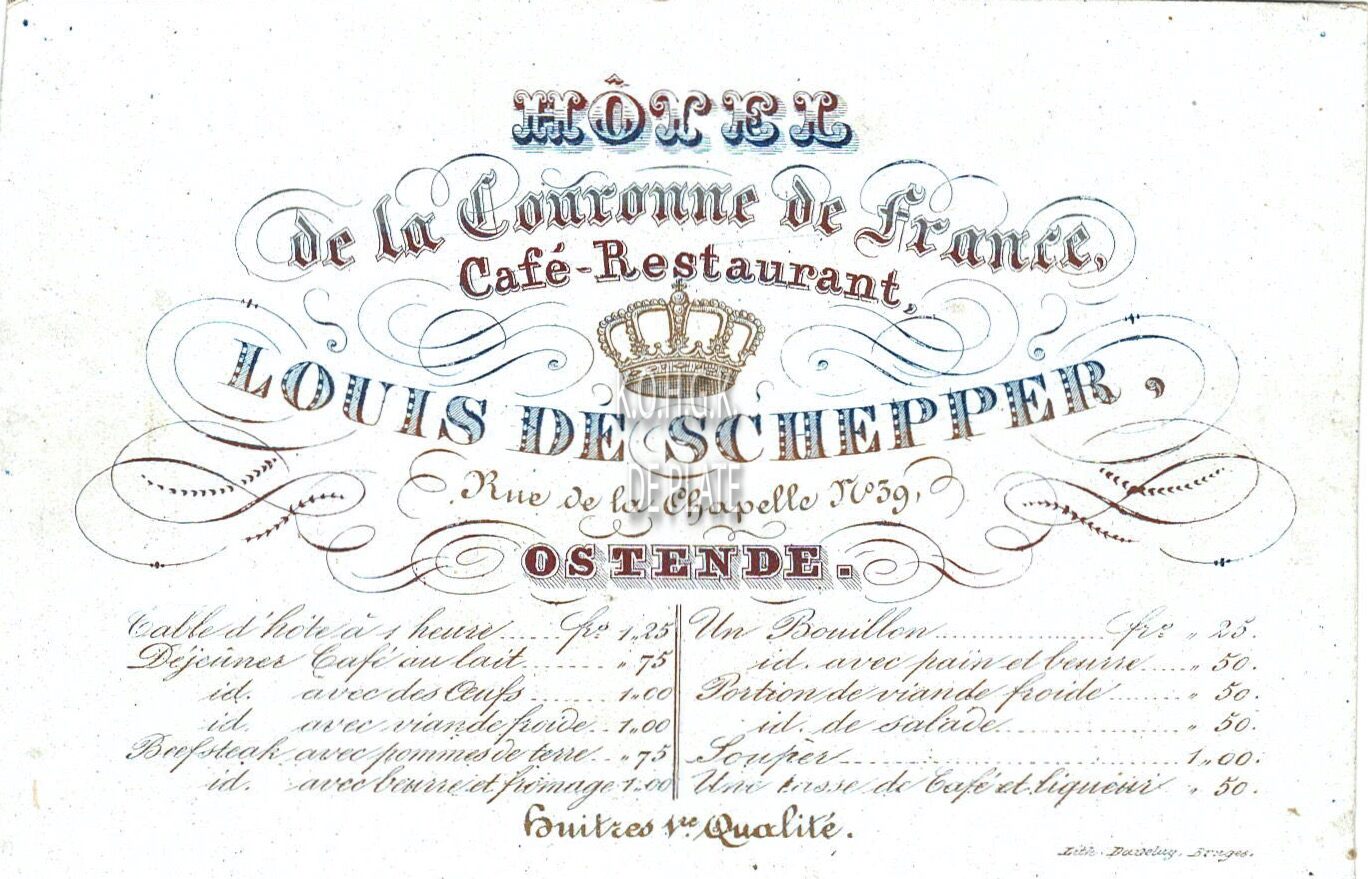 HÔTEL
de la Couronne de France,
Café-Restaurant,
LOUIS DE SCHEPPER,
Rue de la Chapelle N° 39,
OSTENDE.
Table d'hôte à 1 heure ..... frs 1,,25
Déjeûner Café au lait ..... ,, 75
id. avec des Œufs ..... 1,,00
id. avec viande froide .. 1,,00
Beefsteak avec pommes de terre .. ,, 75
id. avec beurre et fromage 1,,00
Un Bouillon ..... frs ,, 25.
id. avec pain et beurre ..... ,, 50.
Portion de viande froide ..... ,, 50.
id. de salade ..... ,, 50.
Soupèr ..... 1,,00.
Une tasse de Café et liqueur ,, 50.
Huitres 1re Qualité.
Lith. Daveluy, Bruges.
DE PLATE